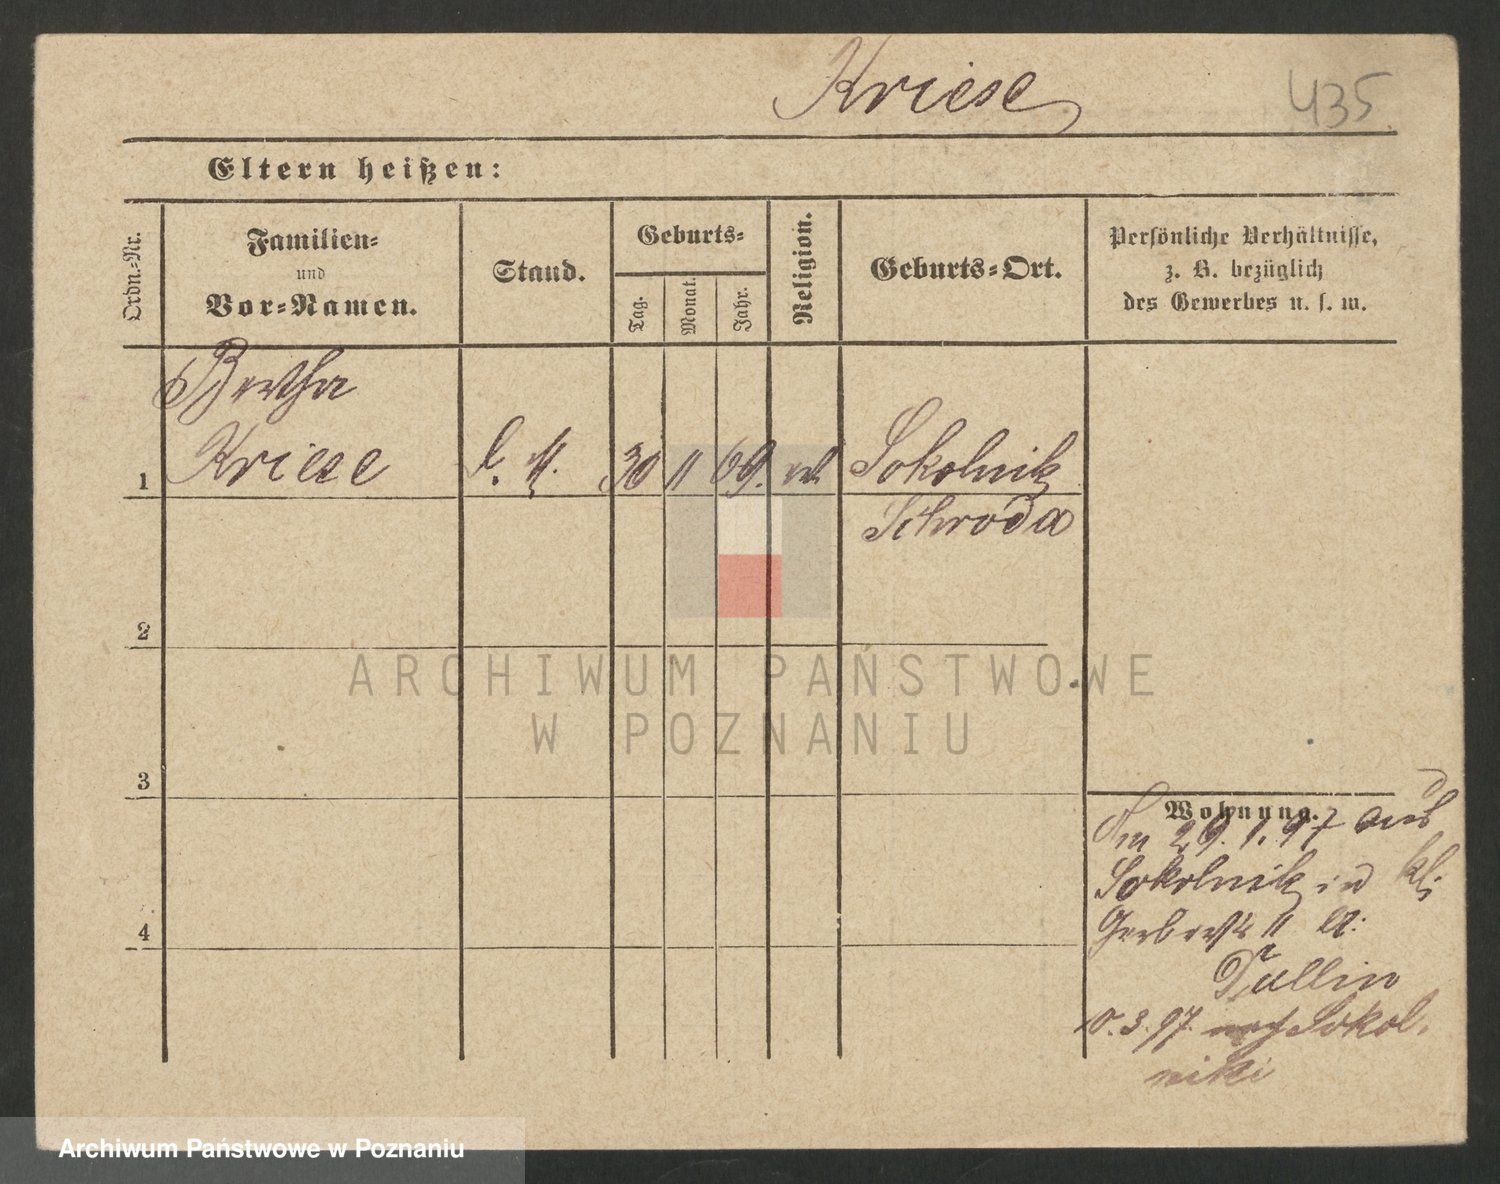 Kriese
435
Eltern heißen:
Ordn.-Nr.
Familien-
und
Vor-Namen.
Stand.
Geburts-
Tag.
Monat.
Jahr.
Religion.
Geburts-Ort.
Persönliche Verhältnisse,
z. B. bezüglich
des Gewerbes u. s. w.
Bertha
1 Kriese 30 11 69. Sokolnik
Schroda
2
3
4
Wohnung.
29. 1. 97 aus
Sokolnik in kl:
Gerberstr 11
Tullin
3. 97. nach Sokol-
niki
ARCHIWUM PAŃSTWOWE
W POZNANIU
Archiwum Państwowe w Poznaniu